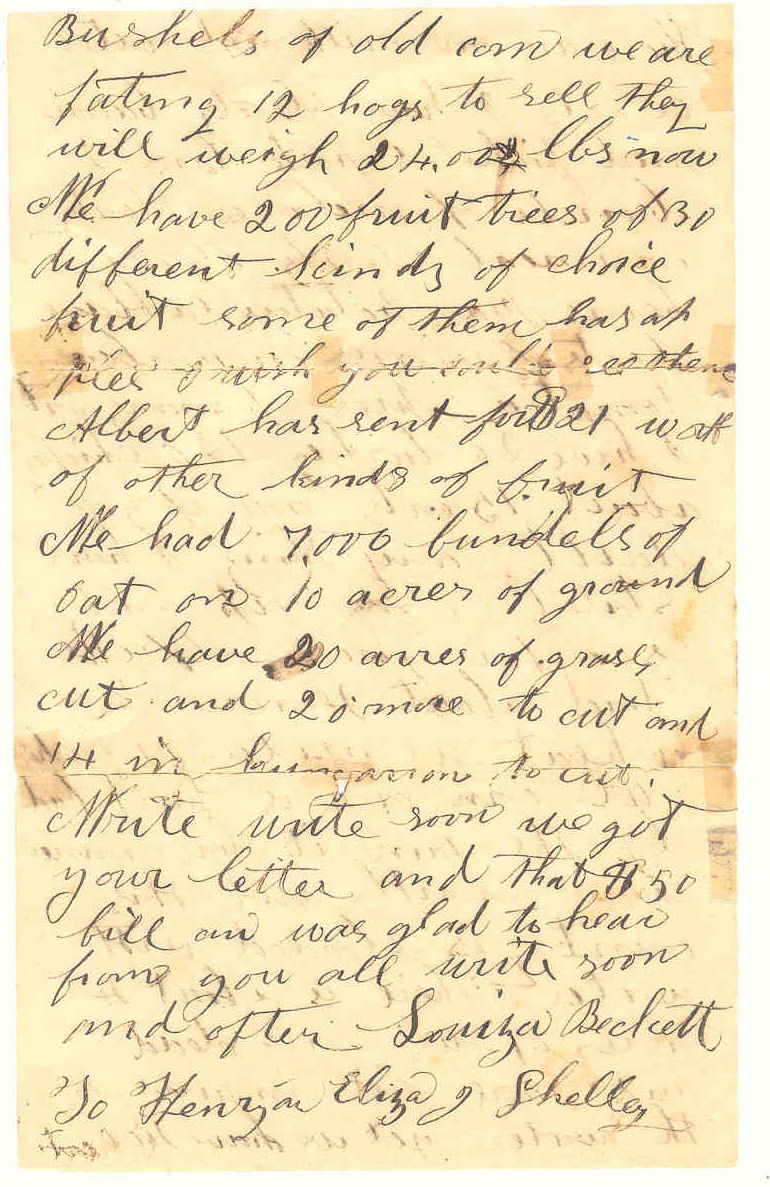 Bushels of old corn we are
fating 12 hogs to sell they
will weigh 24.00 lbs now
We have 200 fruit trees of 30
different kinds of choice
fruit some of them has ap
ples I wish you could see them
Albert has sent for $21 worth
of other kinds of fruit
We had 7,000 bundels of
oat on 10 acres of ground
We have 20 acres of grass
cut and 20 more to cut and
14 in to cut.
Write write soon we got
your letter and that $50
bill an was glad to hear
from you all write soon
and ofter Louiza Beckett
To Henry an Eliza J Shelley